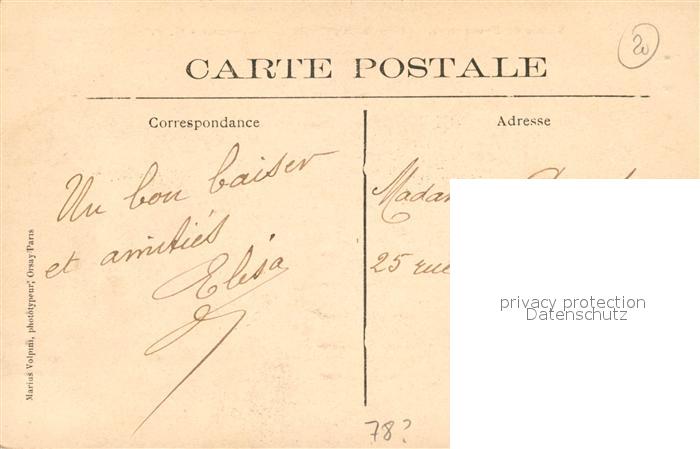 20
CARTE POSTALE
Correspondance
Adresse
Un bon baiser
et amitiés
Elisa
Madam
25 rue
privacy protection
Datenschutz
Marius Volpini, phototypeur, Orsay-Paris
78?